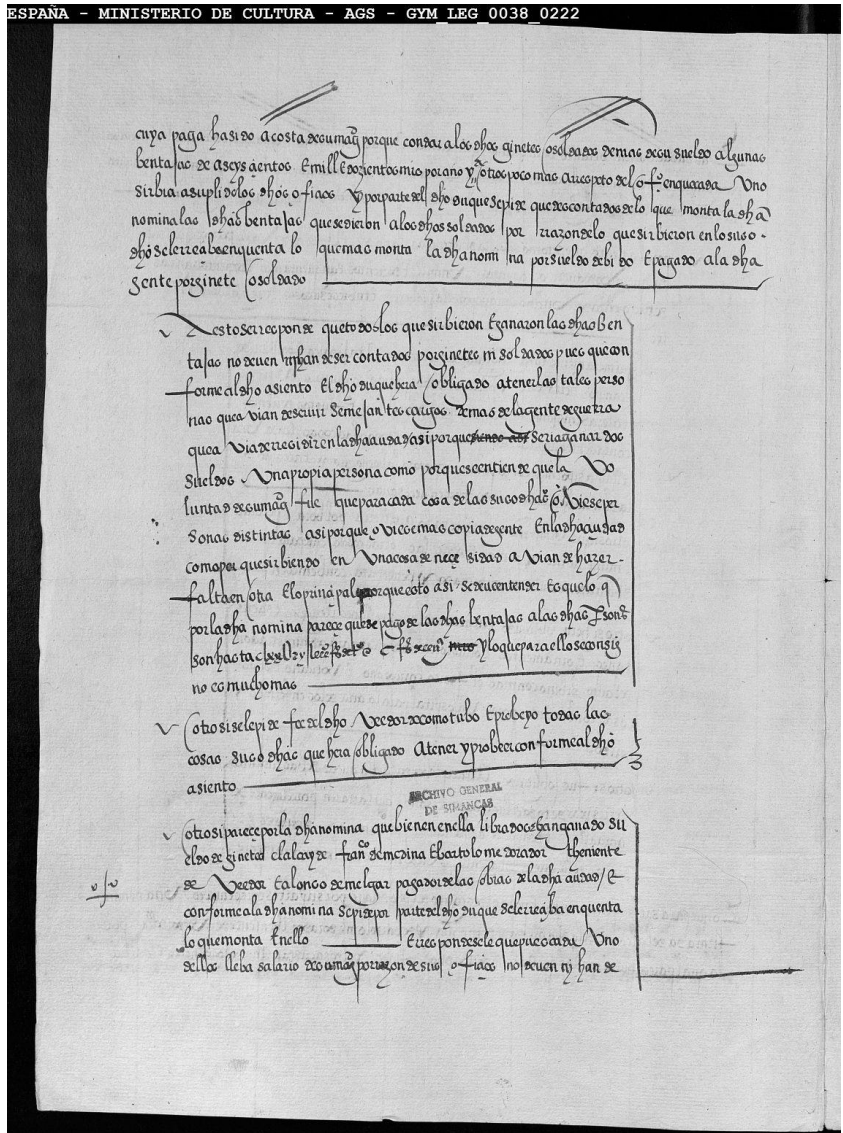 ESPAÑA - MINISTERIO DE CULTURA - AGS - GYM_LEG_0038_0222
cuya paga ha sido a costa de su magt porque con dar a los dhos ginetes o soldados demas de su sueldo algunas
bentajas de a seys çientos E mill E dozientos mrs por año y a otros poco mas a rrespeto del ofio en que cada Uno
sirbia a suplido los dhos ofiçios Y por parte del dho duque se pide que descontados de lo que monta la dha
nomina las dhas bentajas que se dieron a los dhos soldados por rrazon de lo que sirbieron en lo suso
dho se le rreçaben en quenta lo que mas monta la dha nomina por sueldo debido E pagado a la dha
gente por ginete o soldado
A esto se rresponde que todos los que sirbieron E ganaron las dhas ben
tajas no deuen ni han de ser contados por ginetes ni soldados pues que con
forme al dho asiento El dho duque hera obligado a tener las tales perso
nas que avian de seruir semejantes cargos demas de la gente de guerra
que avia de rresidir en la dha çiudad asi porque seria ganar dos
sueldos Una propia persona como porque se entiende que la Vo
luntad de su magt fue que para cada cosa de las suso dhas oViese per
sonas distintas asi porque oviese mas copia de gente En la dha çiudad
como porque sirbiendo en Una cosa de neçesidad avian de hazer
falta en otra E lo prinçipal porque esto asi se deue entender Es que lo q
por la dha nomina pareçe que se pago de las dhas bentajas a las dhas psonas
son hasta y lo que para ello se consig
no es mucho mas
otrosi se le pide fee del dho Veedor de como tubo E probeyo todas las
cosas suso dhas que hera obligado A tener y probeer conforme al dho
asiento
ARCHIVO GENERAL
DE SIMANCAS
otrosi pareçe por la dha nomina que bienen en ella librados E han ganado su
eldo de ginetes el alcayde franco de medina E bartolome dorador theniente
de Veedor E alonso de melgar pagador de las obras de la dha çiudad / E
conforme a la dha nomina se pide por parte del dho duque se le rreçaba en quenta
lo que monta En ello E rrespondesele que pues cada Uno
dellos lleba salario de su magt por rrazon de sus ofiçios no deuen ny han de